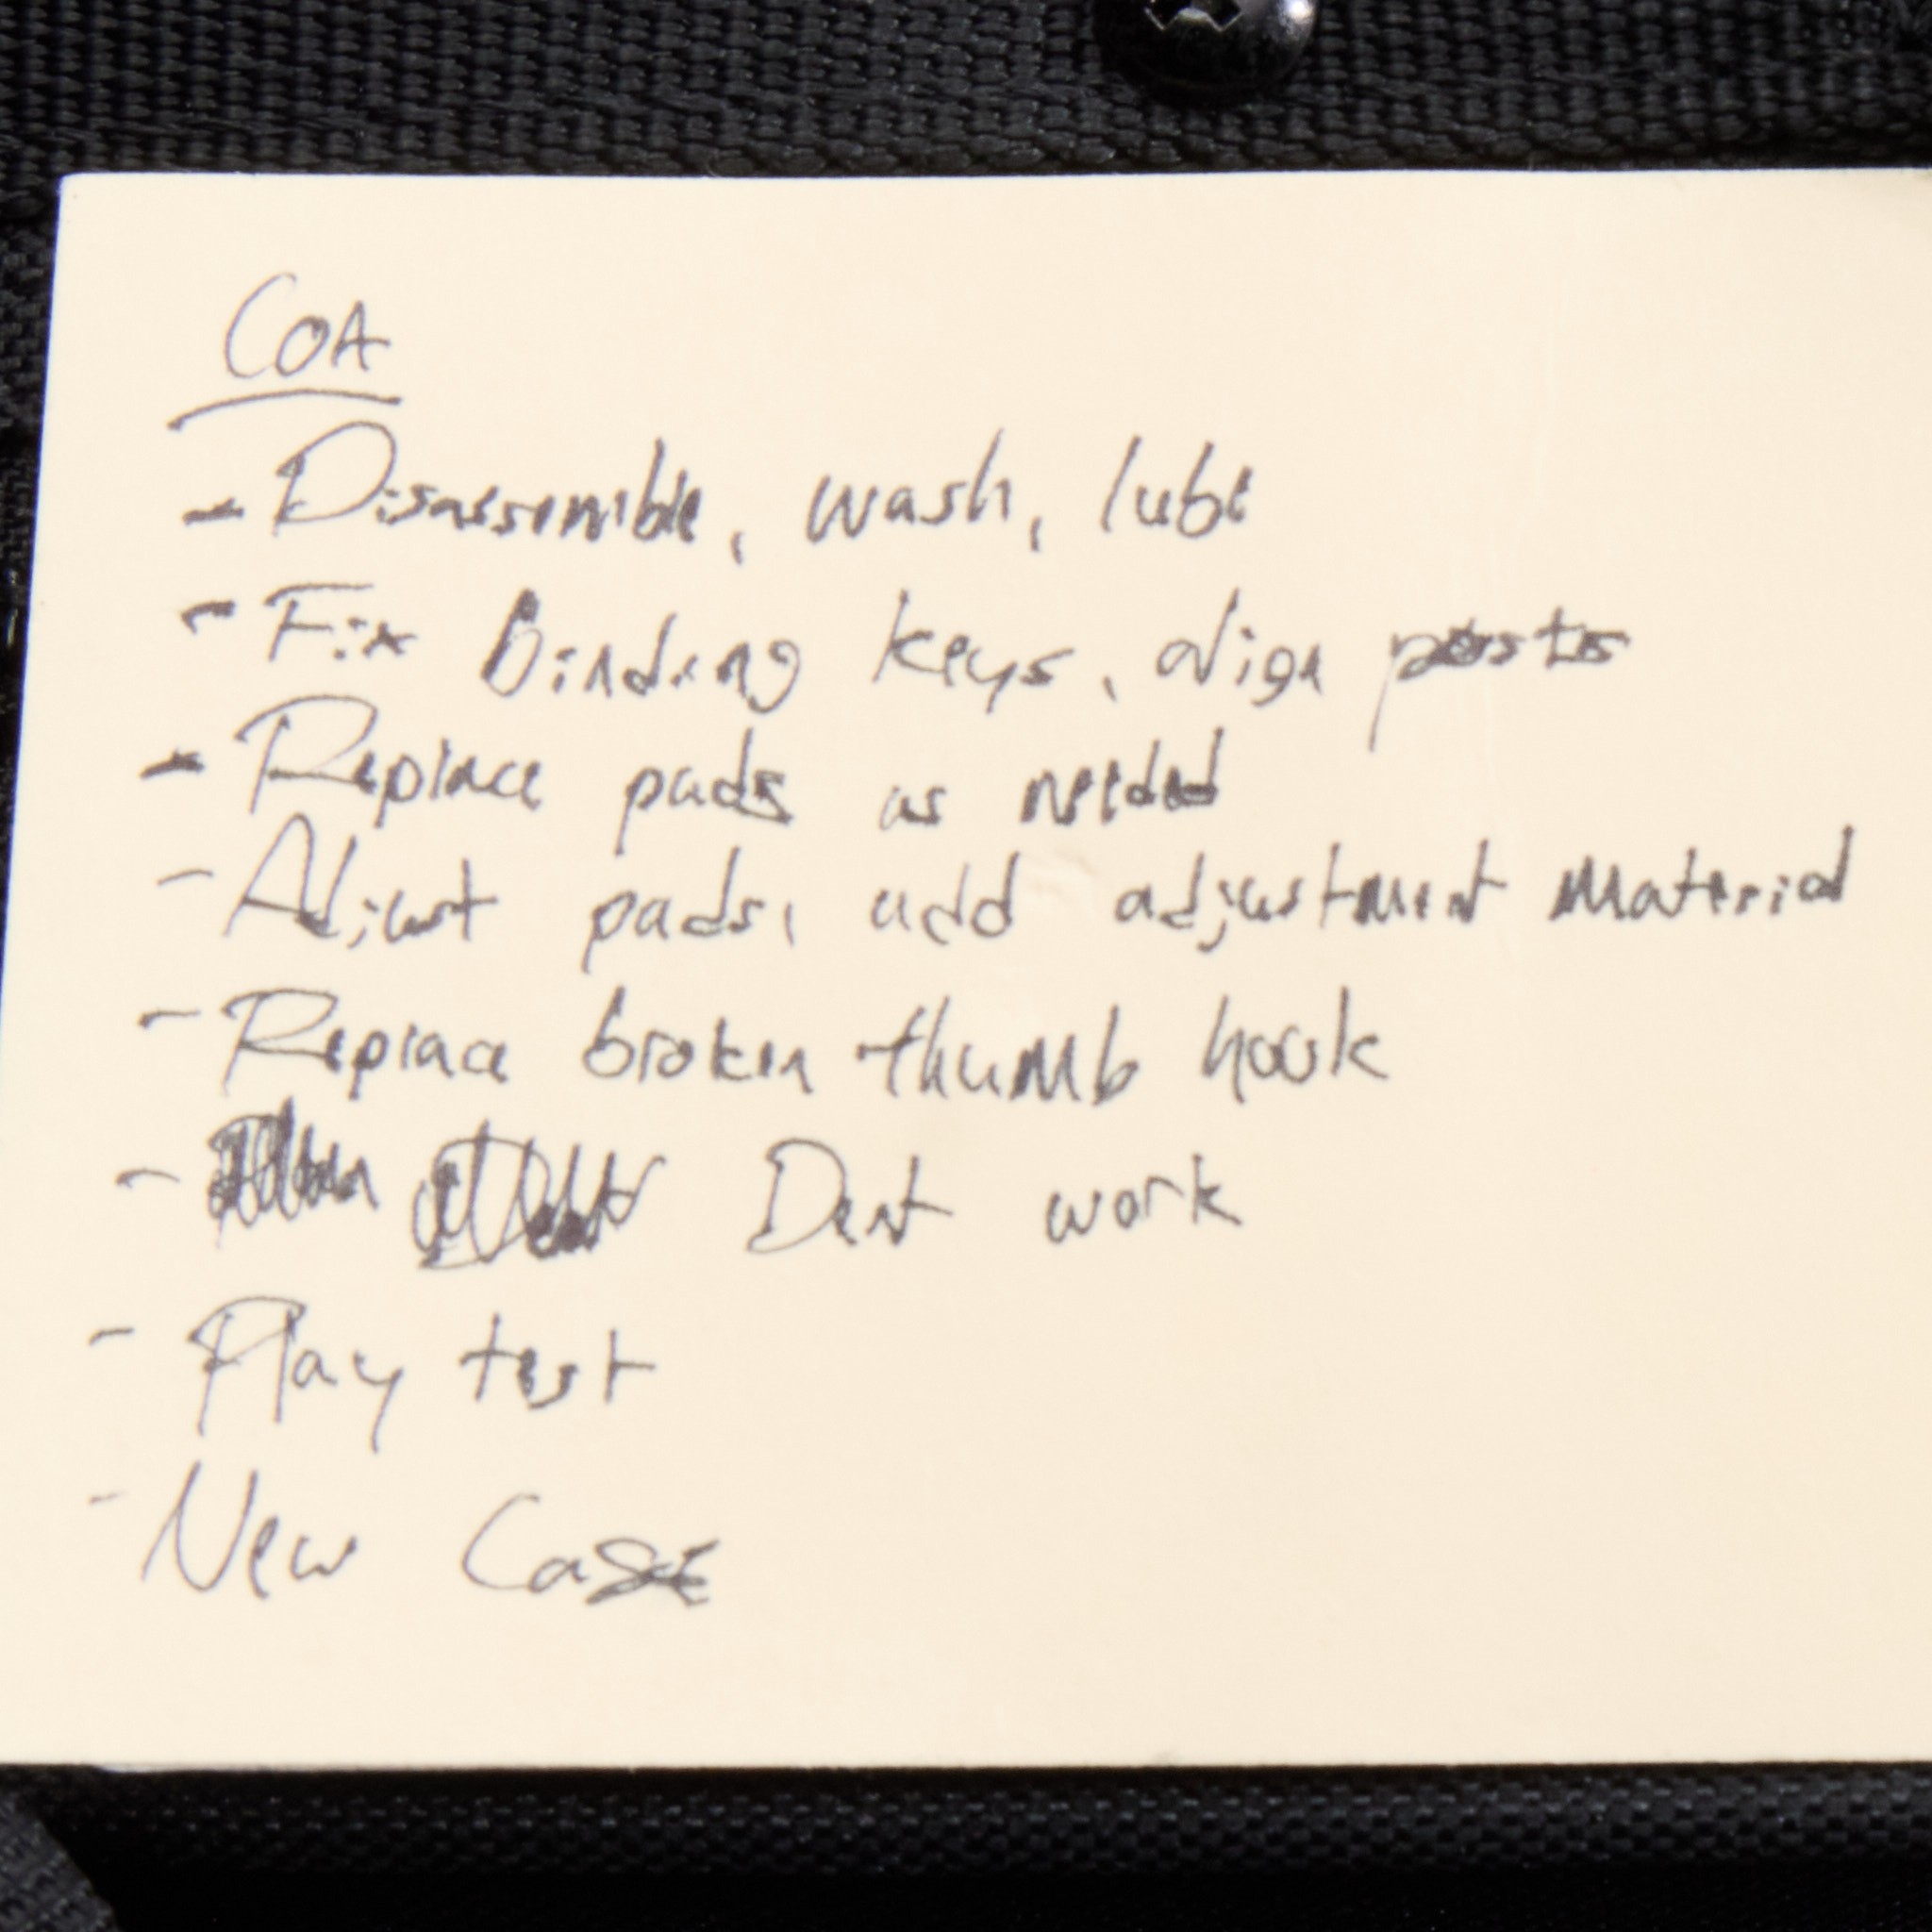 COA
- Disassemble, wash, lube
- Fix Binding keys, align posts
- Replace pads as needed
- Adjust pads, add adjustment material
- Replace broken thumb hook
- Dent work
- Play test
- New Case